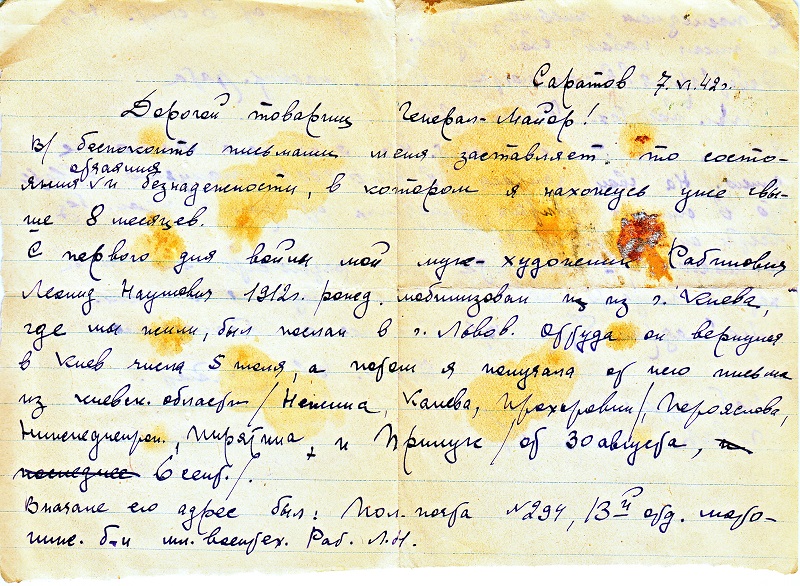 Саратов 7.VI.42г.
Дорогой товарищ Генерал-Майор!
В/ беспокоить письмами меня заставляет то состо-
отчаяния
яния V и безнадежности, в котором я нахожусь уже свы-
ше 8 месяцев.
С первого дня войны мой муж - художник Рабинович
Леонид Наумович 1912г. /рожд. мобилизован из г. Киева,
где мы жили, был послан в г. Львов. Оттуда он вернулся
в Киев числа 5 июля, а потом я получала от него письма
из киевск. области / Нежина, Канева, Прохоровки/, Переяслова,
Нижнеднепров., Пирятина + и Прилук / от 30 августа, и
последнее 6 сент./.
Вначале его адрес был: Пол. почта № 294, 13й отд. мото-
инж. б-н мл. воентех. Раб. Л.Н.